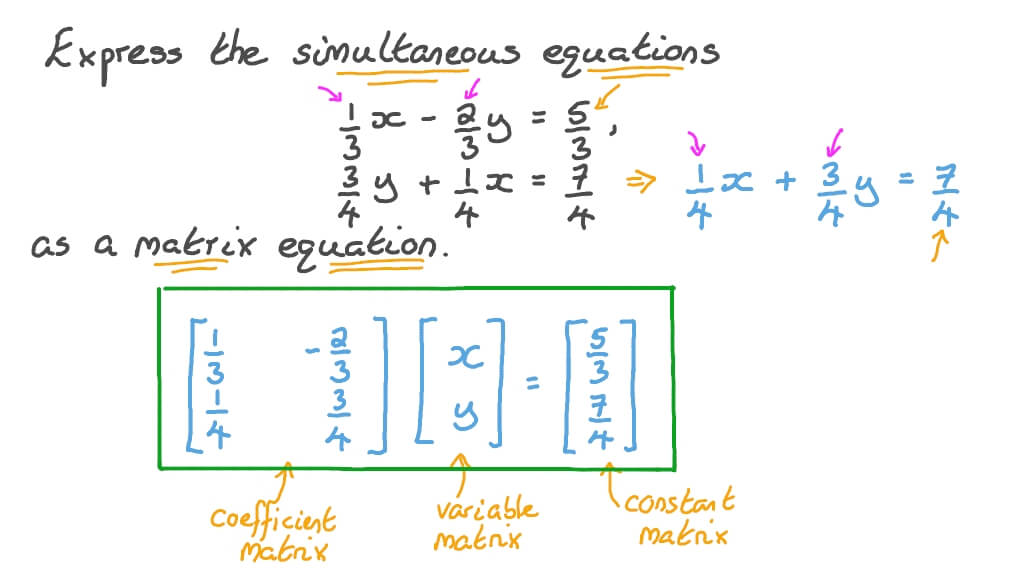 Express the simultaneous equations
1/3 x - 2/3 y = 5/3,
3/4 y + 1/4 x = 7/4 ⇒ 1/4 x + 3/4 y = 7/4
as a matrix equation.
[1/3 -2/3] [x] = [5/3]
[1/4 3/4] [y] [7/4]
coefficient matrix
variable matrix
constant matrix